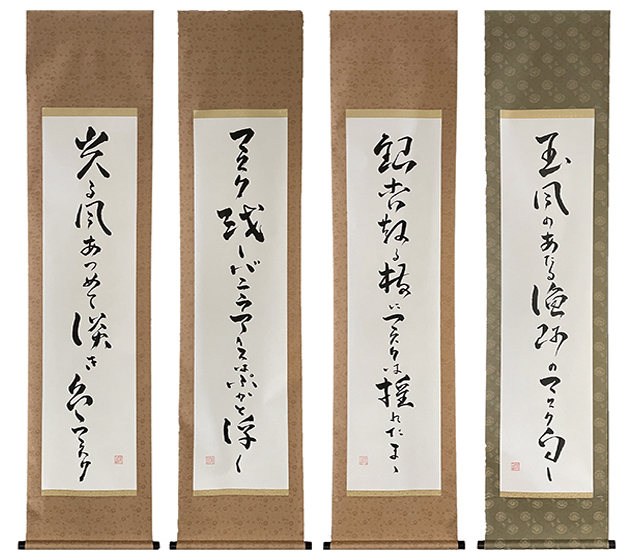 玉風のあたる漁師のマスク白し
銀杏散る枝にマスクは揺れたまゝ
マスク越しバニラアイスはぷかと浮く
光る風あつめて淡き色マスク